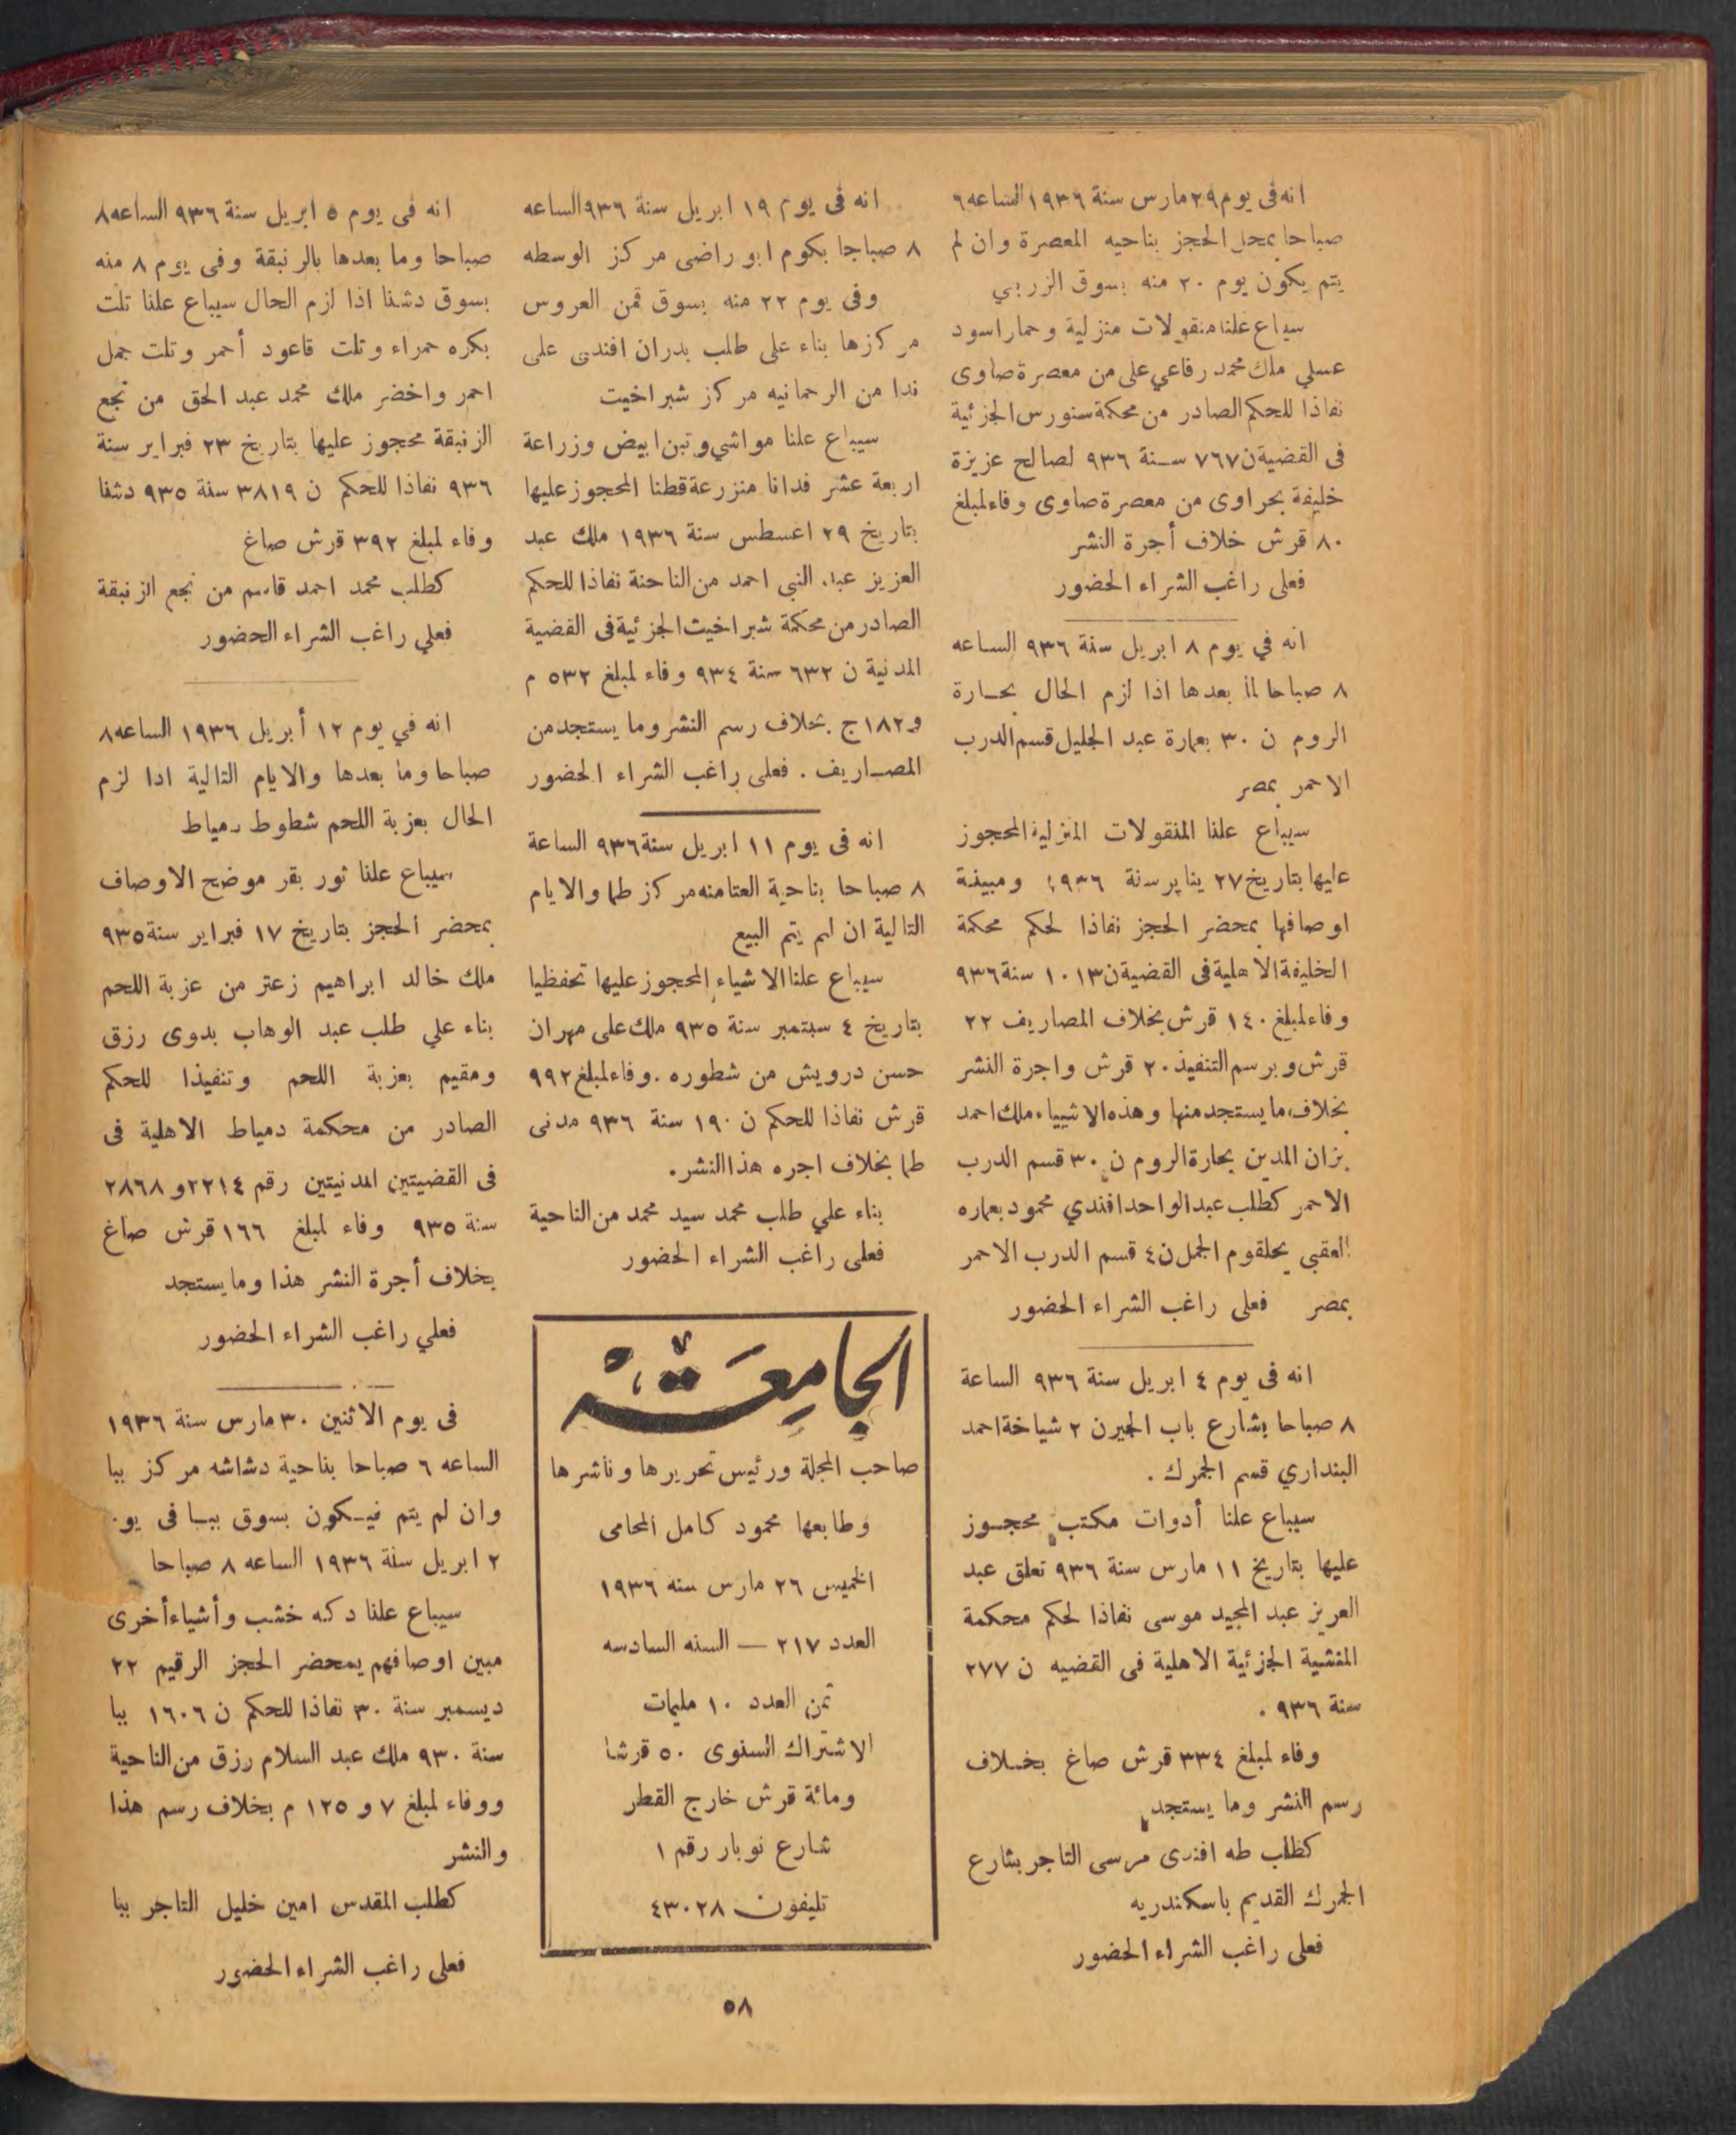 انه فى يوم ٢٩ مارس سنة ١٩٣٦ الساعه ٦
صباحا بمحل الحجز بناحيه المعصرة وان لم
يتم يكون يوم ٢٠ منه بسوق الزربي
سيباع علنا منقولات منزلية وحمار اسود
عسلي ملك محمد رفاعي على من معصرة صاوى
نفاذا للحكم الصادر من محكمة سنورس الجزئية
فى القضية ن ٧٦٧ سنة ٩٣٦ لصالح عزيزة
خليفة بحراوى من معصرة صاوى وفاء لمبلغ
٨٠ قرش خلاف أجرة النشر
فعلى راغب الشراء الحضور
انه في يوم ٨ ابريل سنة ٩٣٦ الساعه
٨ صباحا لما بعدها اذا لزم الحال بحارة
الروم ن ٣٠ بعمارة عبد الجليل قسم الدرب
الاحمر بمصر
سيباع علنا المنقولات المنزلية المحجوز
عليها بتاريخ ٢٧ يناير سنة ١٩٣٦ ومبينة
اوصافها بمحضر الحجز نفاذا لحكم محكمة
الخليفة الاهلية فى القضية ن ١٠١٣ سنة ٩٣٦
وفاء لمبلغ ١٤٠ قرش بخلاف المصاريف ٢٢
قرش وبرسم التنفيذ ٢٠ قرش واجرة النشر
بخلاف ما يستجد منها وهذه الاشيياء ملك احمد
بزان المدين بحارة الروم ن ٣٠ قسم الدرب
الاحمر كطلب عبد الواحد افندي محمود بعماره
العقبي بحلقوم الجمل ن ٤ قسم الدرب الاحمر
بمصر فعلى راغب الشراء الحضور
انه فى يوم ٤ ابريل سنة ٩٣٦ الساعة
٨ صباحا بشارع باب الجيرن ٢ شياخة احمد
البنداري قسم الجمرك .
سيباع علنا أدوات مكتب محجوز
عليها بتاريخ ١١ مارس سنة ٩٣٦ تعلق عبد
العزيز عبد المجيد موسى نفاذا لحكم محكمة
المنشية الجزئية الاهلية فى القضيه ن ٢٧٧
سنة ٩٣٦ .
وفاء لمبلغ ٣٣٤ قرش صاغ بخلاف
رسم النشر وما يستجد
كطلب طه افندى مرسى التاجر بشارع
الجمرك القديم باسكندريه
فعلى راغب الشراء الحضور
انه فى يوم ١٩ ابريل سنة ٩٣٦ الساعه
٨ صباحا بكوم ابو راضى مركز الوسطه
وفى يوم ٢٢ منه بسوق قمن العروس
مركزها بناء على طلب بدران افندى على
ندا من الرحمانيه مركز شبراخيت
سيباع علنا مواشي وتبن ابيض وزراعة
اربعة عشر فدانا منزرعة قطنا المحجوز عليها
بتاريخ ٢٩ اغسطس سنة ١٩٣٦ ملك عبد
العزيز عبد النبي احمد من الناحنة نفاذا للحكم
الصادر من محكمة شبراخيت الجزئية فى القضية
المدنية ن ٦٣٢ سنة ٩٣٤ وفاء لمبلغ ٥٣٢ م
و١٨٢ ج بخلاف رسم النشر وما يستجد من
المصاريف . فعلى راغب الشراء الحضور
انه فى يوم ١١ ابريل سنة ٩٣٦ الساعة
٨ صباحا بناحية العتامنه مركز طما والايام
التالية ان لم يتم البيع
سيباع علنا الاشياء المحجوز عليها تحفظيا
بتاريخ ٤ سبتمبر سنة ٩٣٥ ملك على مهران
حسن درويش من شطوره . وفاء لمبلغ ٩٩٢
قرش نفاذا للحكم ن ١٩٠ سنة ٩٣٦ مدنى
طما بخلاف اجره هذا النشر.
بناء علي طلب محمد سيد محمد من الناحية
فعلى راغب الشراء الحضور
الجامعة
صاحب المجلة ورئيس تحريرها وناشرها
وطابعها محمود كامل المحامى
الخميس ٢٦ مارس سنه ١٩٣٦
العدد ٢١٧ — السنه السادسه
ثمن العدد ١٠ مليمات
الاشتراك السنوى ٥٠ قرشا
ومائة قرش خارج القطر
شارع نوبار رقم ١
تليفون ٤٣٠٢٨
انه فى يوم ٥ ابريل سنة ٩٣٦ الساعه ٨
صباحا وما بعدها بالرنبقة وفى يوم ٨ منه
بسوق دشنا اذا لزم الحال سيباع علنا تلت
بكره حمراء وتلت قاعود أحمر وتلت جمل
احمر واخضر ملك محمد عبد الحق من نجع
الزنبقة محجوز عليها بتاريخ ٢٣ فبراير سنة
٩٣٦ نفاذا للحكم ن ٣٨١٩ سنة ٩٣٥ دشنا
وفاء لمبلغ ٣٩٢ قرش صاغ
كطلب محمد احمد قاسم من نجع الزنبقة
فعلي راغب الشراء الحضور
انه في يوم ١٢ أبريل ١٩٣٦ الساعه ٨
صباحا وما بعدها والايام التالية اذا لزم
الحال بعزبة اللحم شطوط دمياط
سيباع علنا ثور بقر موضح الاوصاف
بمحضر الحجز بتاريخ ١٧ فبراير سنة ٩٣٥
ملك خالد ابراهيم زعتر من عزبة اللحم
بناء علي طلب عبد الوهاب بدوى رزق
ومقيم بعزبة اللحم وتنفيذا للحكم
الصادر من محكمة دمياط الاهلية فى
فى القضيتين المدنيتين رقم ٢٢١٤ و ٢٨٦٨
سنة ٩٣٥ وفاء لمبلغ ١٦٦ قرش صاغ
بخلاف أجرة النشر هذا وما يستجد
فعلي راغب الشراء الحضور
فى يوم الاثنين ٣٠ مارس سنة ١٩٣٦
الساعه ٦ صباحا بناحية دشاشه مركز ببا
وان لم يتم فيكون بسوق ببا فى يو
٢ ابريل سنة ١٩٣٦ الساعه ٨ صباحا
سيباع علنا دكه خشب وأشياء أخرى
مبين اوصافهم بمحضر الحجز الرقيم ٢٢
ديسمبر سنة ٣٠ نفاذا للحكم ن ١٦٠٦ ببا
سنة ٩٣٠ ملك عبد السلام رزق من الناحية
ووفاء لمبلغ ٧ و ١٢٥ م بخلاف رسم هذا
والنشر
كطلب المقدس امين خليل التاجر ببا
فعلى راغب الشراء الحضور
٥٨